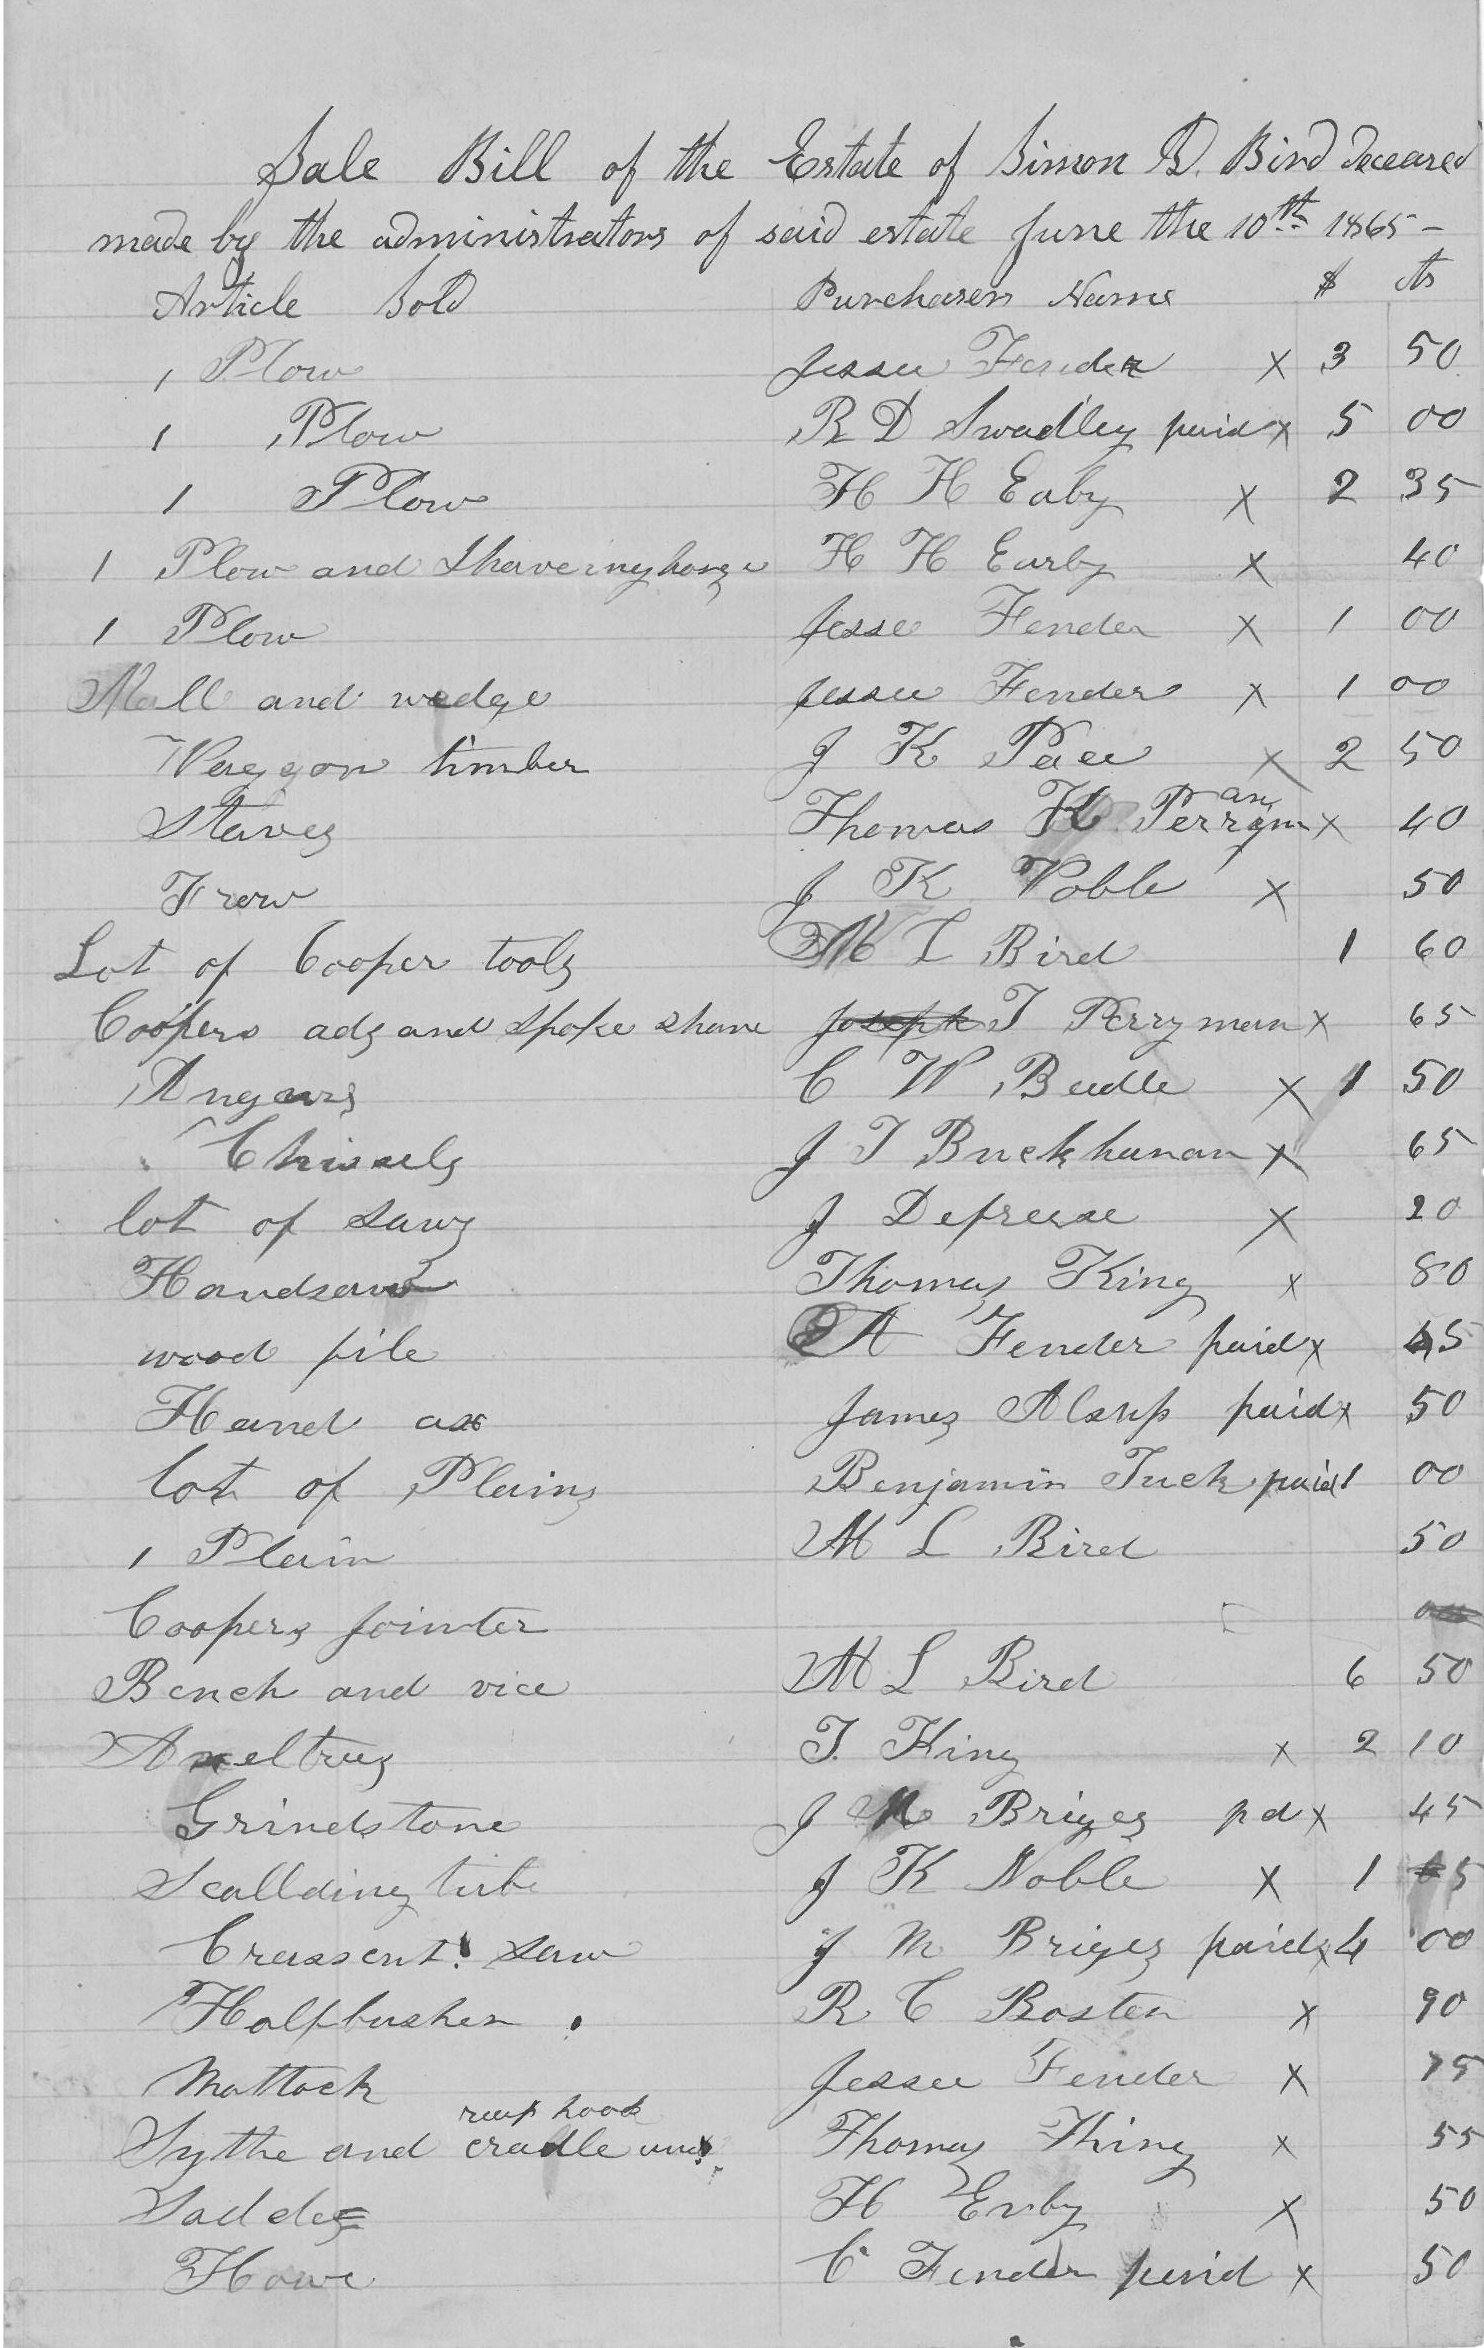 Sale Bill of the Estate of Simon D. Bird deceased
made by the administrators of said estate June the 10th 1865 -
Article Sold Purchasers Name $ cts
1 Plow Jessee Fender x 3 50
1 Plow R D Swadley paid x 5 00
1 Plow H H Eaby x 2 35
1 Plow and Shaveinghorse H H Earby x 40
1 Plow Jesse Fender x 1 00
Mall and wedge Jessee Fender x 1 00
Waggon timber J K Pace x 2 50
Staves Thomas K Perryman x 40
Frow J K Noble x 50
Lot of Cooper tools M L Bird 1 60
Coopers adz and spoke shave Joseph T Perryman x 65
Augars C W Beedle x 1 50
Chissels J T Buckhanan x 65
lot of saws J Defreese x 20
Handsaw Thomas King x 80
wood pile A Fender paid x 45
Hand ax James Alsup paid x 50
lot of Plains Benjamin Tuck paid 1 00
1 Plain M L Bird 50
Coopers Jointer
Bench and vice M L Bird 6 50
Axeltrees T. King x 2 10
Grindstone J M Briges pd x 45
Scallding tub J K Noble x 1 5
Crasscut saw J M Briges paid x 4 00
Halfbushen R C Bosten x 90
Mattock Jessee Fender x 75
reap hook
Sythe and cradle and Thomas King x 55
Saddes H Erby x 50
Howe C Fender paid x 50